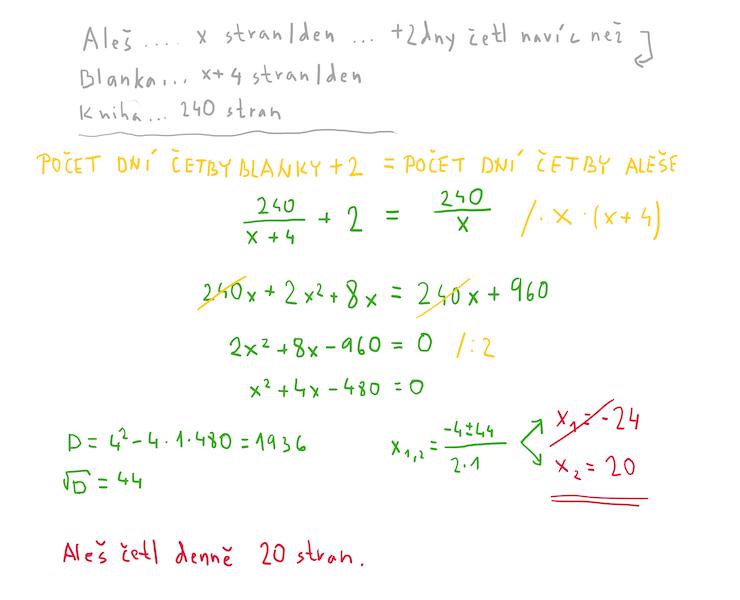 Aleš .... x stran/den ... +2dny četl navíc než
Blanka... x+4 stran/den
Kniha... 240 stran
POČET DNÍ ČETBY BLANKY + 2 = POČET DNÍ ČETBY ALEŠE
240/(x+4) + 2 = 240/x /·x·(x+4)
240x + 2x² + 8x = 240x + 960
2x² + 8x - 960 = 0 /:2
x² + 4x - 480 = 0
D = 4² - 4·1·480 = 1936
√D = 44
x₁,₂ = (-4±44)/(2·1)
x₁ = -24
x₂ = 20
Aleš četl denně 20 stran.